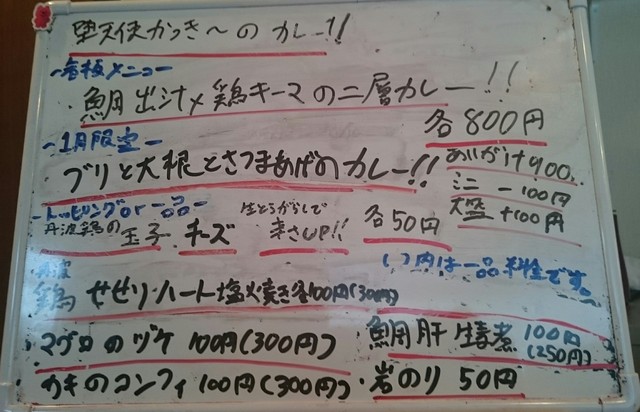 堕天使かっき～の カレー!!
-看板メニュー
・鯛出汁×鶏キーマの二層カレー!!
各800円
-1月限定-
ブリと大根とさつまあげのカレー!!
あいがけ900.
ミニ -100円
大盛 +100円
-トッピングor一品-
丹波鶏の玉子 チーズ 生とうがらしで辛さUP!! 各50円
丹波鶏 せせり・ハート塩焼き各100円(300円)
( )内は一品料金です。
マグロのヅケ 100円(300円)
鯛肝生姜煮 100円(250円)
カキのコンフィ 100円(300円)・岩のり 50円